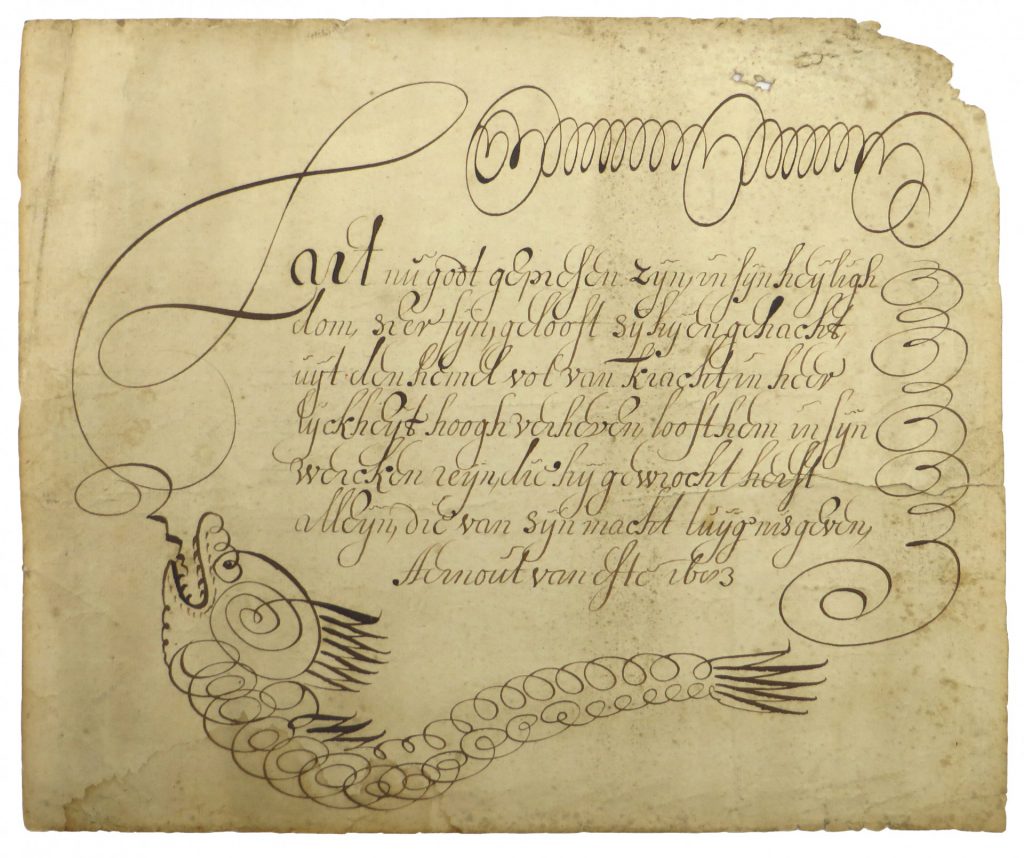 Laet nu godt gepresen zÿn, in sÿn heÿligh
dom, seer fÿn, gelooft sÿ hÿ en geacht,
uÿt den hemel vol van kracht, in heer
lÿckheÿt hoogh verheven, looft hem in sÿn
wercken reÿn, die hÿ gewrocht heeft
alleÿn, die van sÿn macht tuÿgnis geven,
Aernout van Este 1693